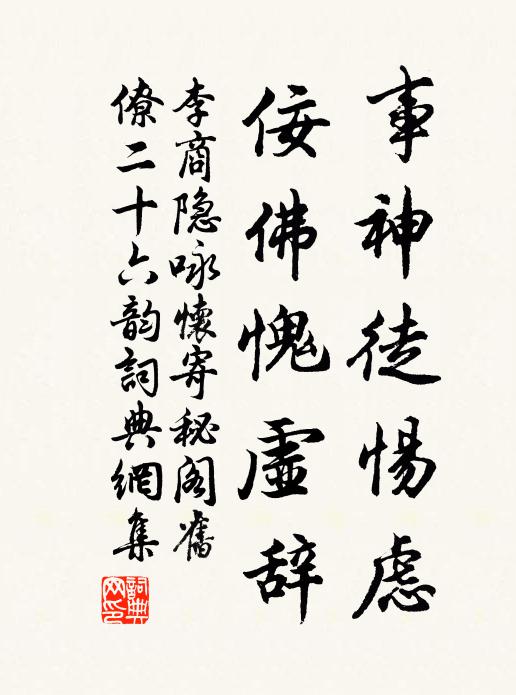 事神徒惕慮
佞佛愧虛辞
李商隐咏懷寄秘阁舊
僚二十六韵詞典網集
詞典
网印